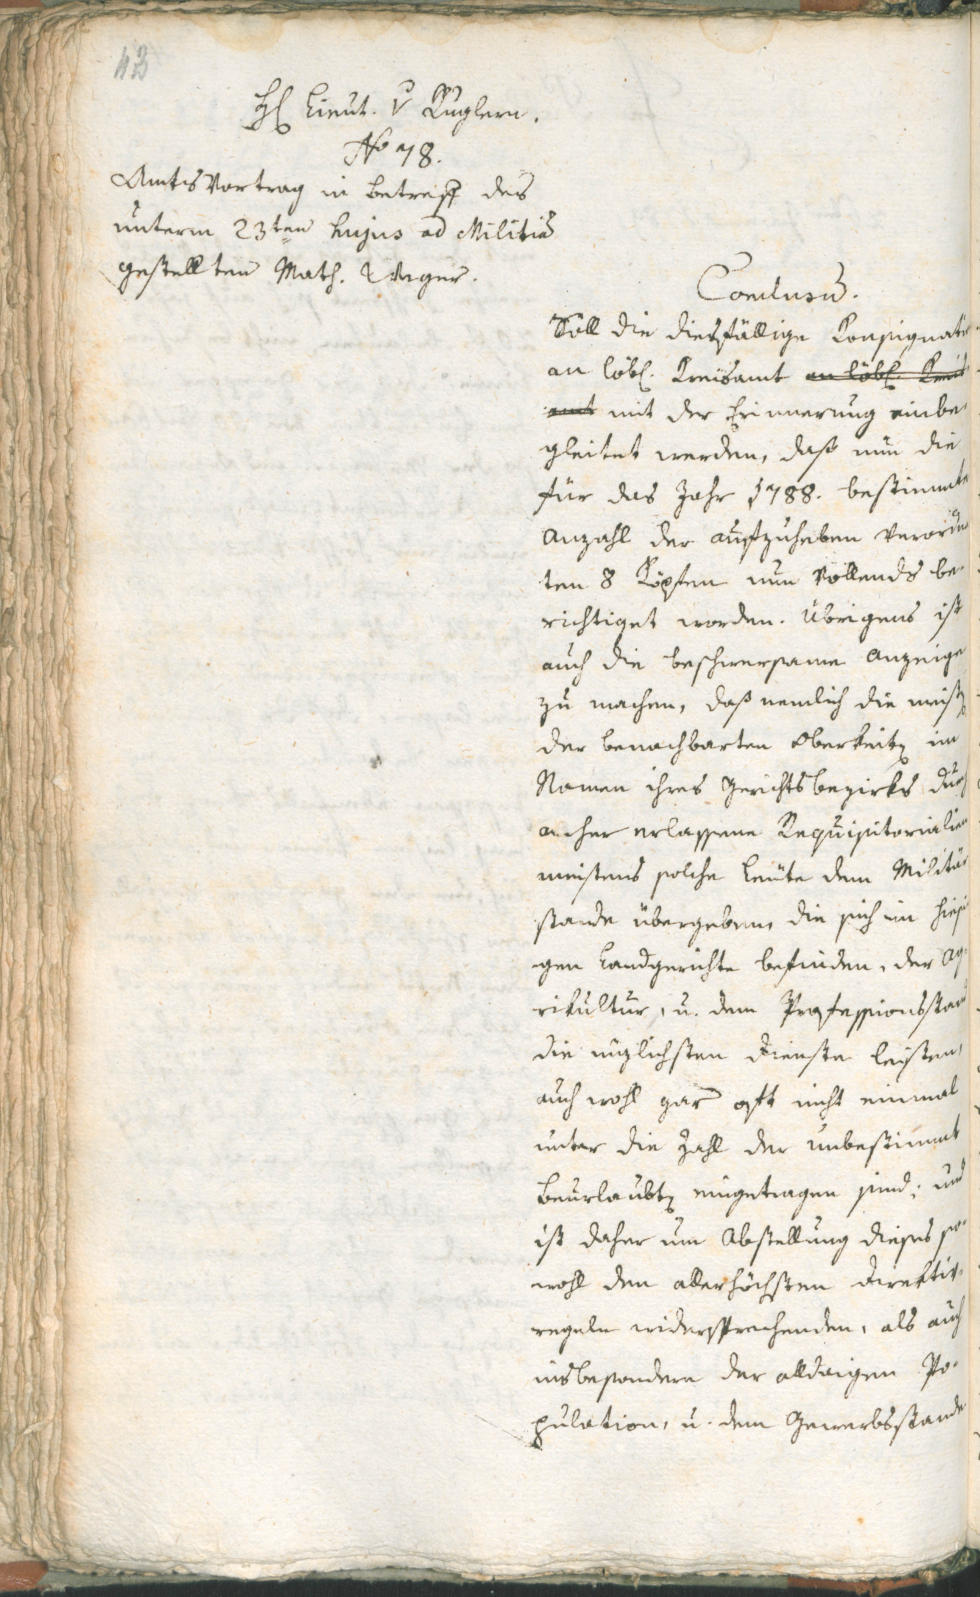 43
H. Lieut. v Kuglern.
No 78.
Amts Vortrag in betreff des
unterm 23ten hujus ad Militiã
gestellten Math. Unger.
Conclusũ.
Soll die diesfällige Konsignation
an löbl. Kreisamt an löbl. Kreis
amt mit der Erinnerung einbe-
gleitet werden, daß nun die
für das Jahr 1788. bestimmte
Anzahl der auszuheben verordne
ten 8 Köpfen nun vollends be-
richtiget worden. Übrigens ist
auch die beschwersame Anzeige
zu machen, daß nemlich die meist
der benachbarten Oberkeiten im
Namen ihres Gerichtsbezirks durch
anher erlassene Requisitorialien
meistens solche Leute dem Militär
stande übergeben, die sich im hiesi
gen Landgerichte befinden, der Ag-
rikultur, u. dem Professionsstand
die nüzlichsten Dienste leisten,
auch wohl gar oft nicht einmal
unter die Zahl der unbestimmt
Beurlaubten eingetragen sind; und
ist daher um Abstellung dieses so-
wohl den allerhöchsten Direktiv-
regeln widersprechenden, als auch
insbesondere der alldaigen Po-
pulation, u. dem Gewerbsstande